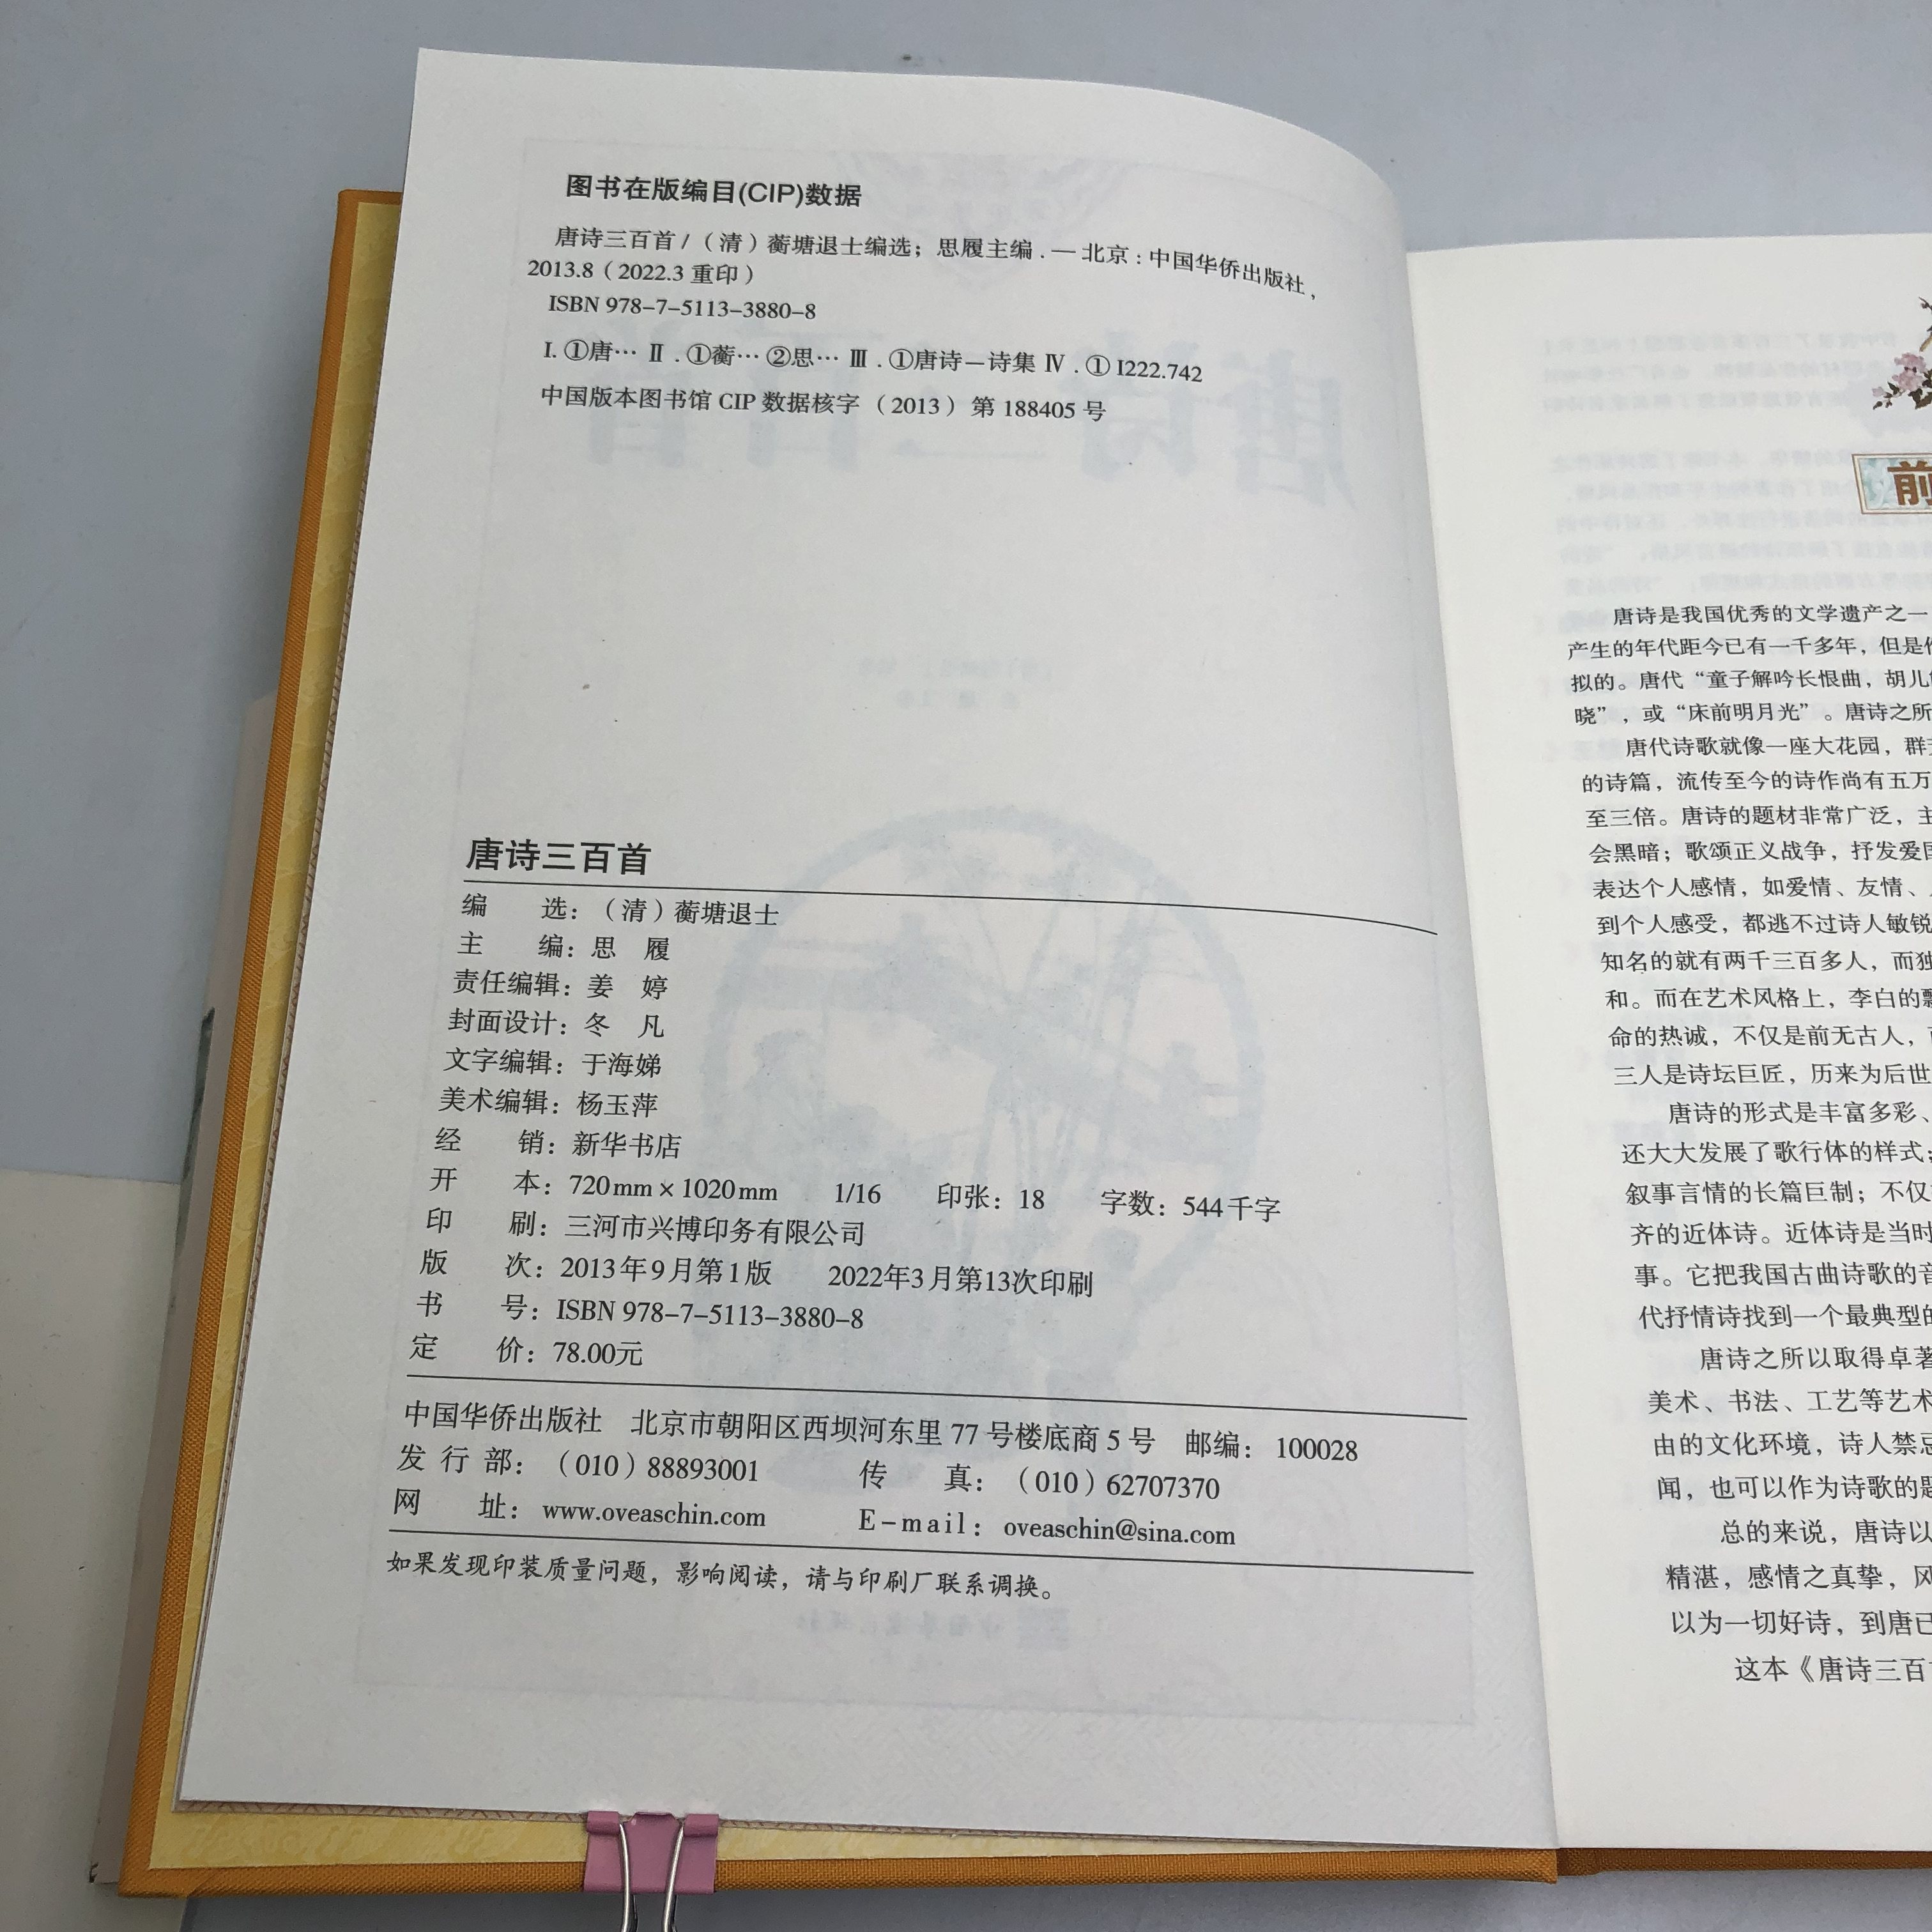 图书在版编目(CIP)数据
唐诗三百首 / （清）蘅塘退士编选；思履主编. — 北京：中国华侨出版社，
2013.8（2022.3 重印）
ISBN 978-7-5113-3880-8
I. ①唐… Ⅱ . ①蘅… ②思… Ⅲ . ①唐诗－诗集 Ⅳ . ① I222.742
中国版本图书馆 CIP 数据核字 （2013）第 188405 号
唐诗三百首
编 选：（清）蘅塘退士
主 编：思 履
责任编辑：姜 婷
封面设计：冬 凡
文字编辑：于海娣
美术编辑：杨玉萍
经 销：新华书店
开 本：720mm×1020mm 1/16 印张：18 字数：544千字
印 刷：三河市兴博印务有限公司
版 次：2013年9月第1版 2022年3月第13次印刷
书 号：ISBN 978-7-5113-3880-8
定 价：78.00元
中国华侨出版社 北京市朝阳区西坝河东里 77 号楼底商 5 号 邮编：100028
发 行 部：（010）88893001 传 真：（010）62707370
网 址：www.oveaschin.com E-mail：oveaschin@sina.com
如果发现印装质量问题，影响阅读，请与印刷厂联系调换。
前
唐诗是我国优秀的文学遗产之一
产生的年代距今已有一千多年，但是
拟的。唐代“童子解吟长恨曲，胡儿
晓”，或“床前明月光”。唐诗之所
唐代诗歌就像一座大花园，群
的诗篇，流传至今的诗作尚有五万
至三倍。唐诗的题材非常广泛，主
会黑暗；歌颂正义战争，抒发爱国
表达个人感情，如爱情、友情、
到个人感受，都逃不过诗人敏锐
知名的就有两千三百多人，而独
和。而在艺术风格上，李白的飘
命的热诚，不仅是前无古人，
三人是诗坛巨匠，历来为后世
唐诗的形式是丰富多彩、
还大大发展了歌行体的样式；
叙事言情的长篇巨制；不仅
齐的近体诗。近体诗是当时
事。它把我国古曲诗歌的音
代抒情诗找到一个最典型的
唐诗之所以取得卓著
美术、书法、工艺等艺术
由的文化环境，诗人禁忌
闻，也可以作为诗歌的题
总的来说，唐诗以
精湛，感情之真挚，风
以为一切好诗，到唐已
这本《唐诗三百